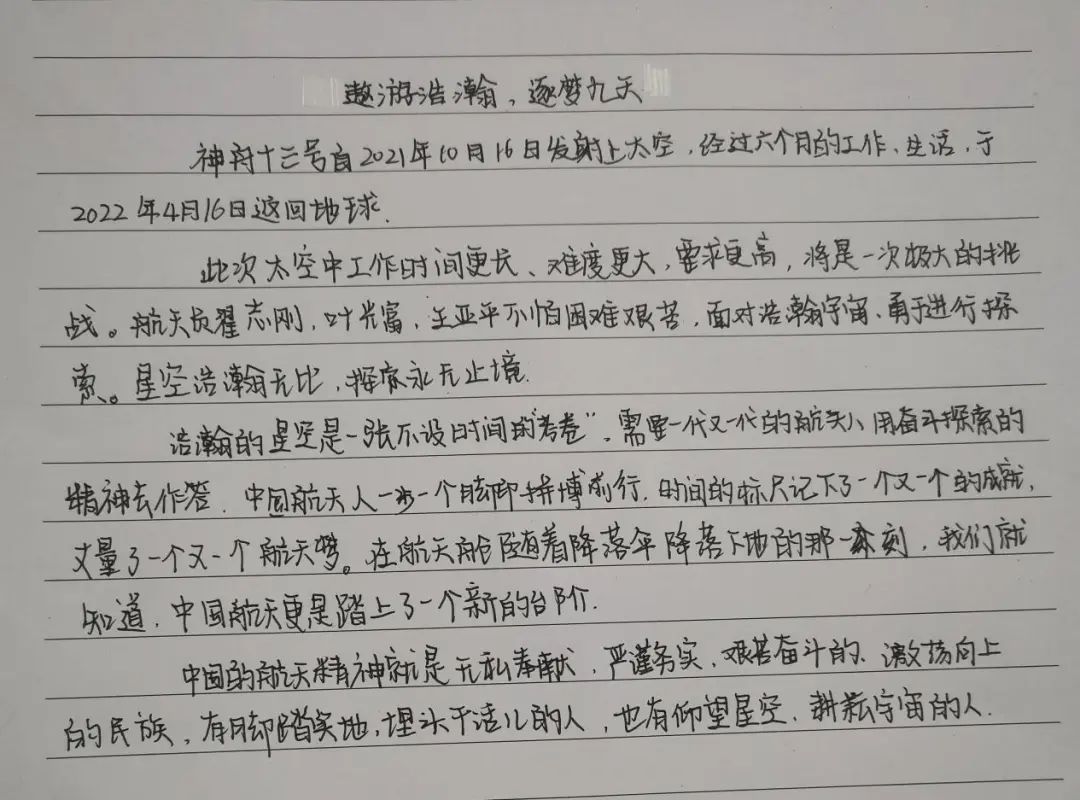 遨游浩瀚，逐梦九天
神舟十三号自2021年10月16日发射上太空，经过六个月的工作、生活，于
2022年4月16日返回地球.
此次太空中工作时间更长、难度更大，要求更高，将是一次极大的挑
战。航天员翟志刚，叶光富，王亚平不怕困难艰苦，面对浩瀚宇宙、勇于进行探
索、。星空浩瀚无比，探索永无止境.
浩瀚的星空是一张不设时间的“考卷”，需要一代又一代的航天人用奋斗探索的
精神去作答.中国航天人一步一个脚印拼搏前行.时间的标尺记下了一个又一个的成就，
丈量了一个又一个航天梦。在航天舱随着降落伞降落下地的那一刻，我们就
知道，中国航天更是踏上了一个新的台阶.
中国的航天精神就是无私奉献，严谨务实，艰苦奋斗的、激扬向上
的民族，有脚踏实地，埋头干活儿的人，也有仰望星空、耕耘宇宙的人.